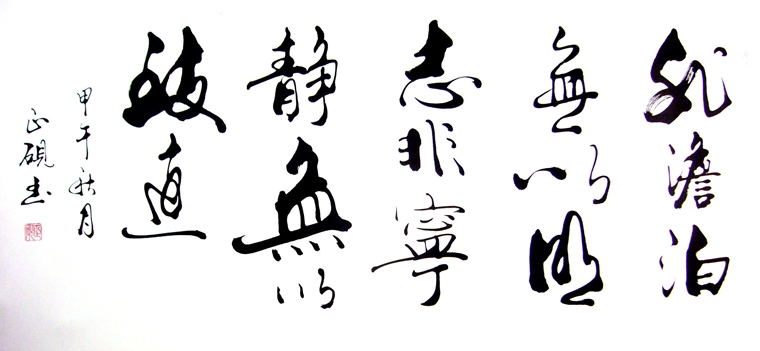 非澹泊
無以明
志非寧
静無以
致遠
甲午秋月
正硯書